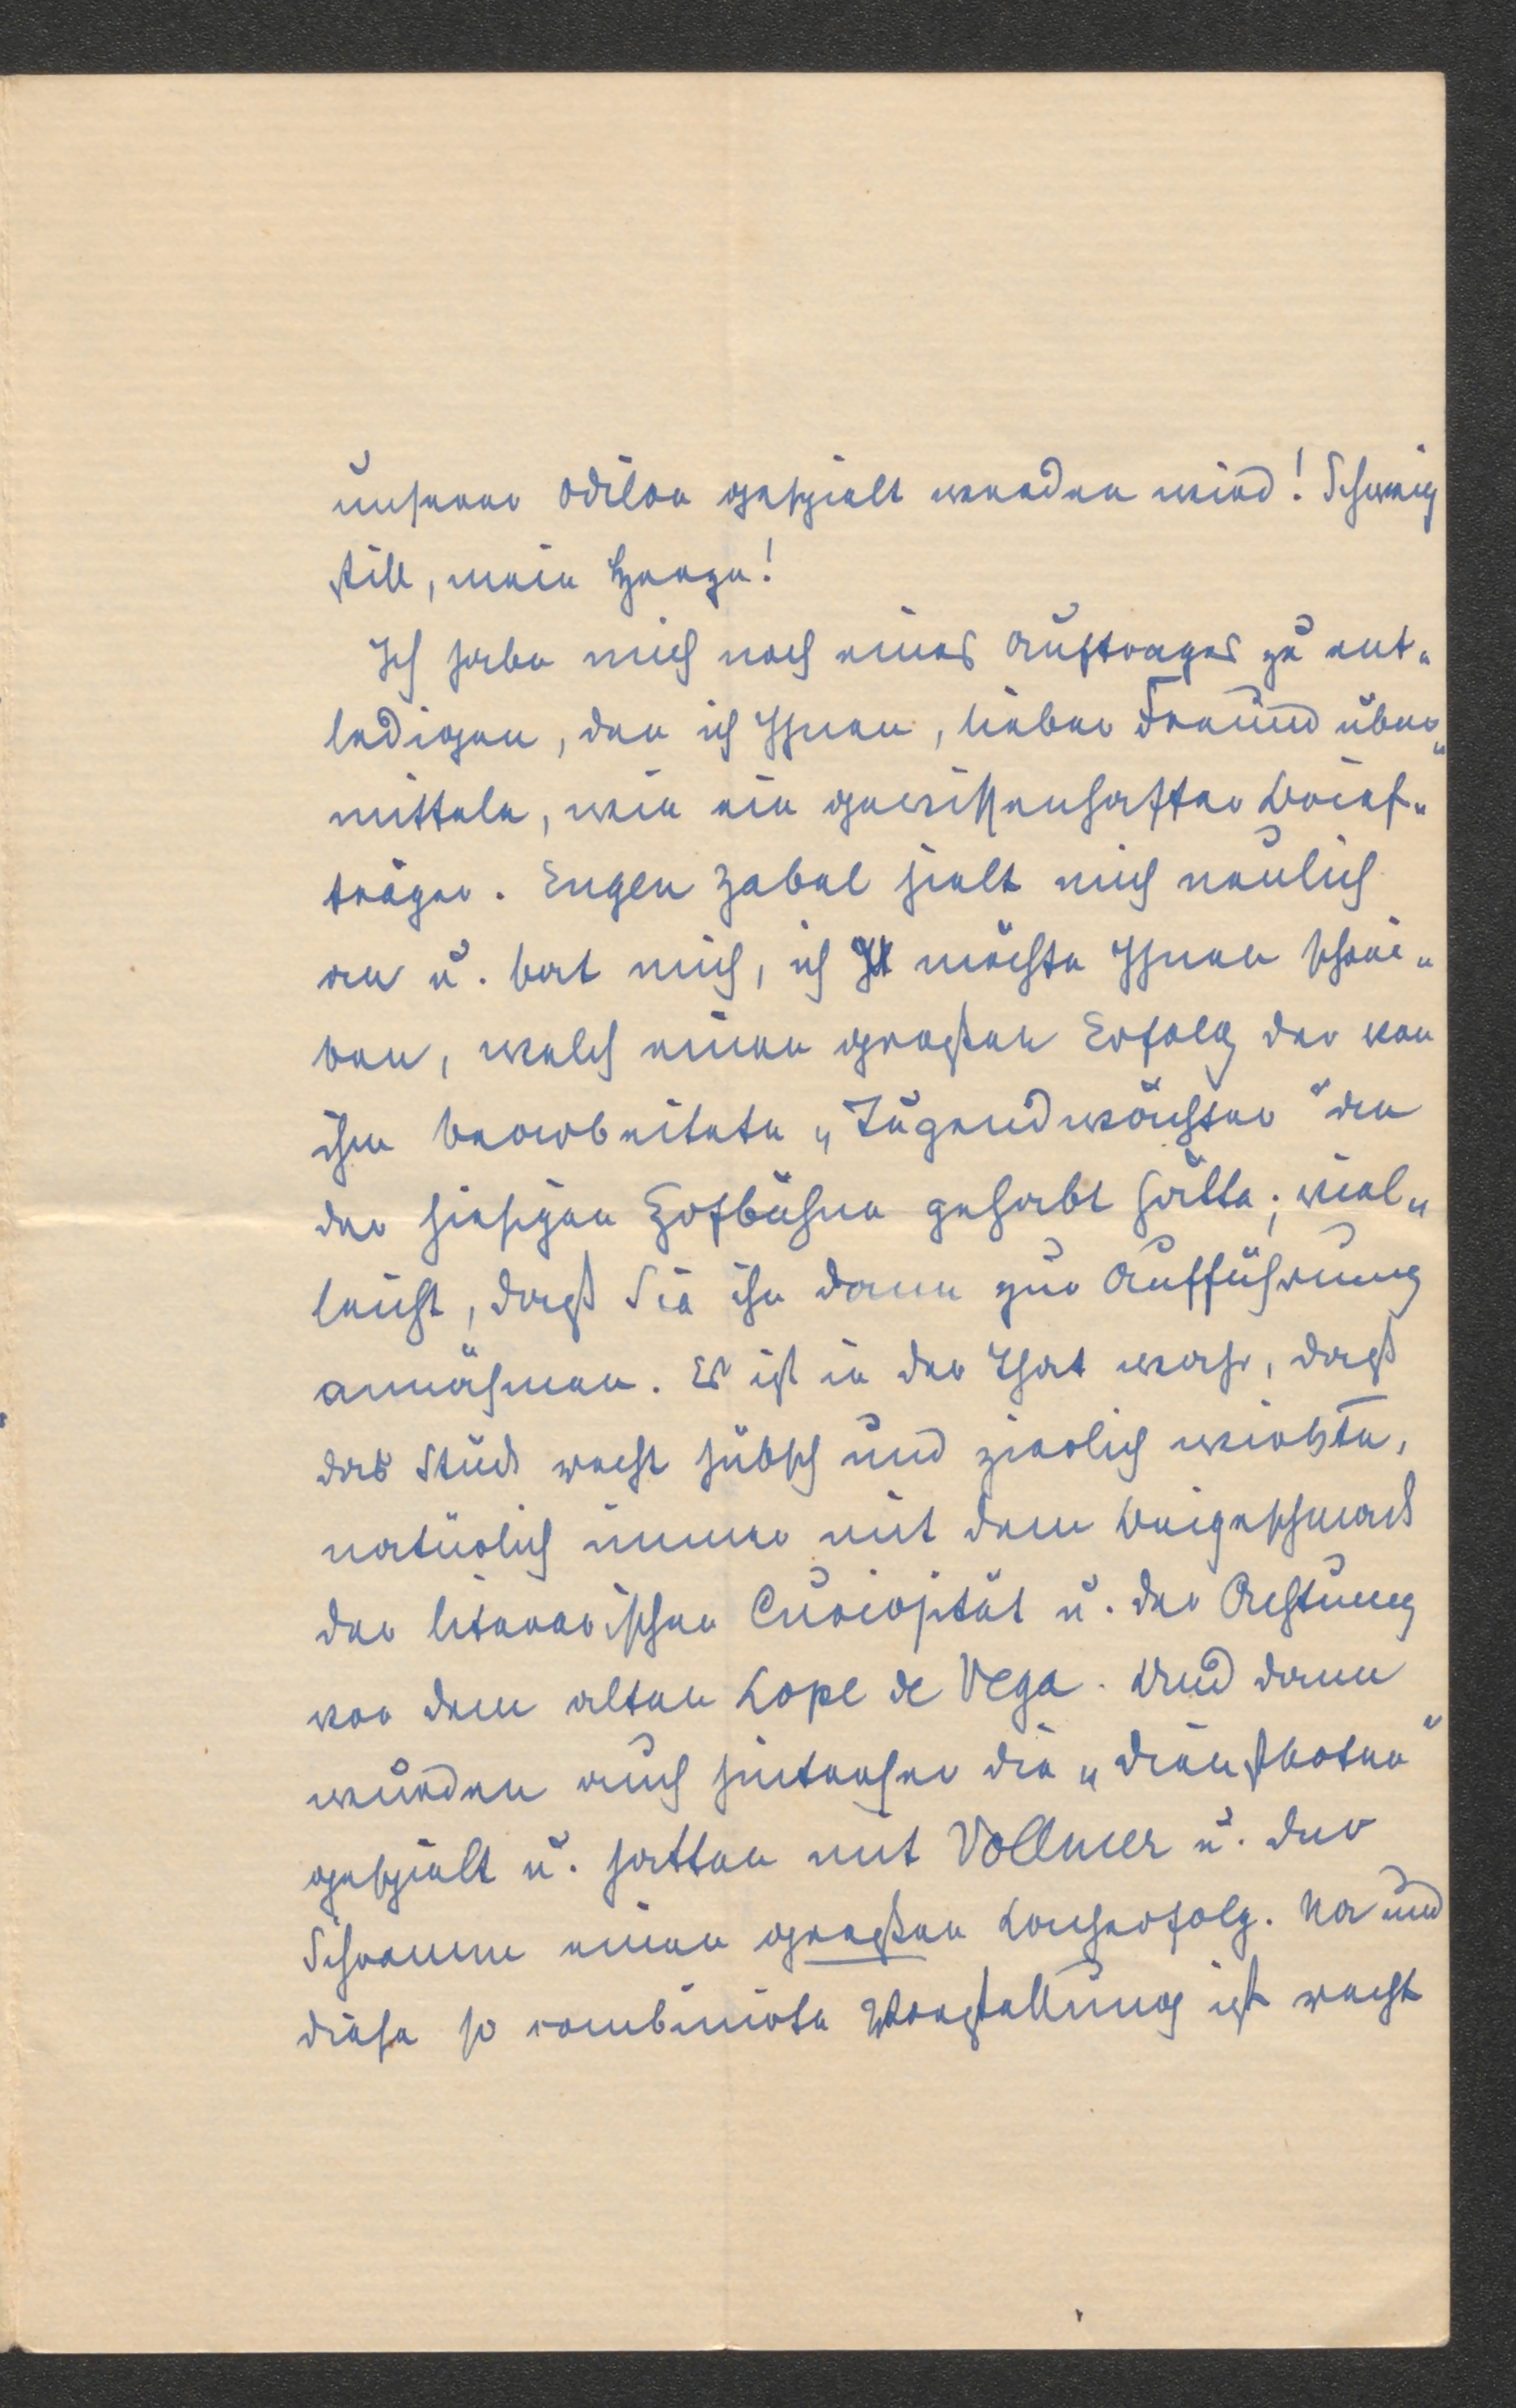 unserer Odilon gespielt werden wird! Schweig
still, mein Herze!
Ich habe mich noch eines Auftrages zu ent-
ledigen, den ich Ihnen, lieber Freund über-
mittele, wie ein gewissenhafter Brief-
träger. Eugen Zabel hielt mich neulich
an u. bat mich, ich möchte Ihnen schrei-
ben, welch einen großen Erfolg der von
ihm bearbeitete „Tugendwächter“ an
der hiesigen Hofbühne gehabt hätte; viel-
leicht, daß Sie ihn dann zur Aufführung
annähmen. Es ist in der That wahr, daß
das Stück recht hübsch und zierlich wirkte,
natürlich immer mit dem Beigeschmack
der literarischen Curiosität u. der Achtung
vor dem alten Lope de Vega. Und dann
wurden auch hinterher die „Dienstboten“
gespielt u. hatten mit Vollmer u. der
Schramm einen großen Lacherfolg. Na und
diese so combinirte Vorstellung ist recht